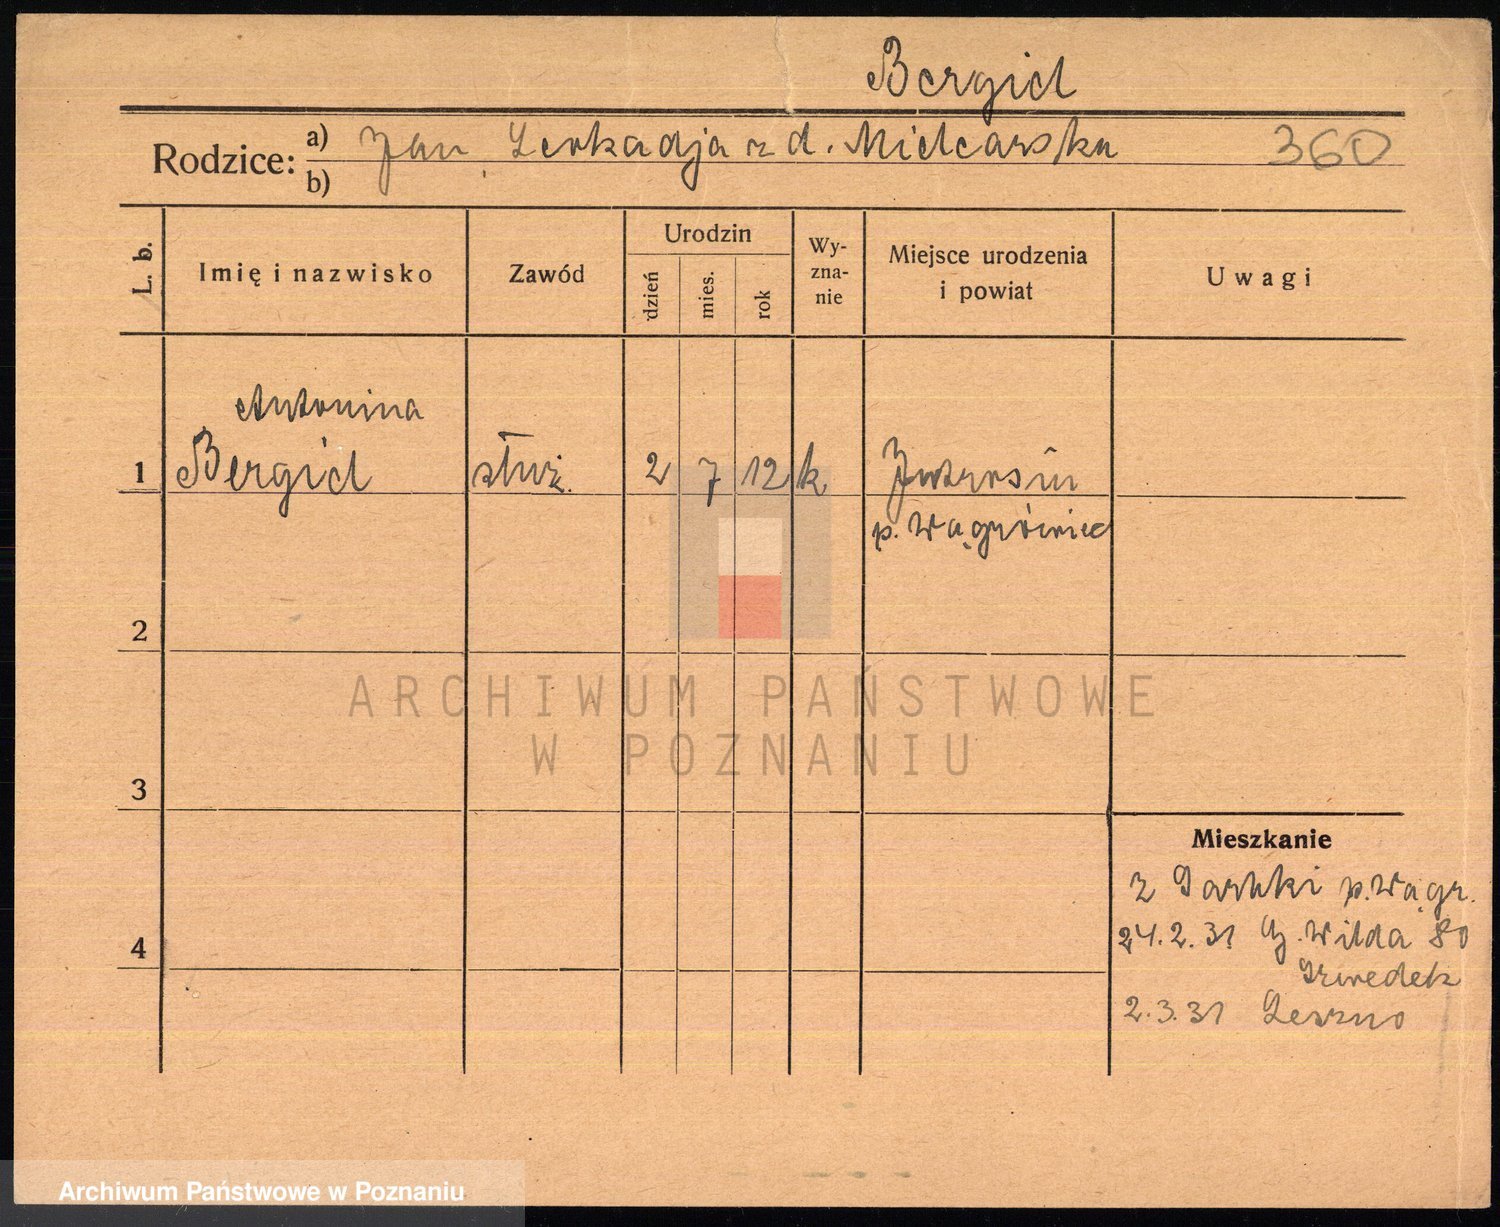 Bergiel
Rodzice: a) Jan, Leokadja z d. Mielcarska 360
b)
L. b.
Imię i nazwisko
Zawód
Urodzin
dzień
mies.
rok
Wy-
zna-
nie
Miejsce urodzenia
i powiat
Uwagi
Antonina
1 Bergiel służ. 2 7 12 k
p. Wągrówiec
2
ARCHIWUM PAŃSTWOWE
W POZNANIU
3
Mieszkanie
z p. Wągr.
4
24.2.31 G. Wilda 80
2.3.31 Leszno
Archiwum Państwowe w Poznaniu